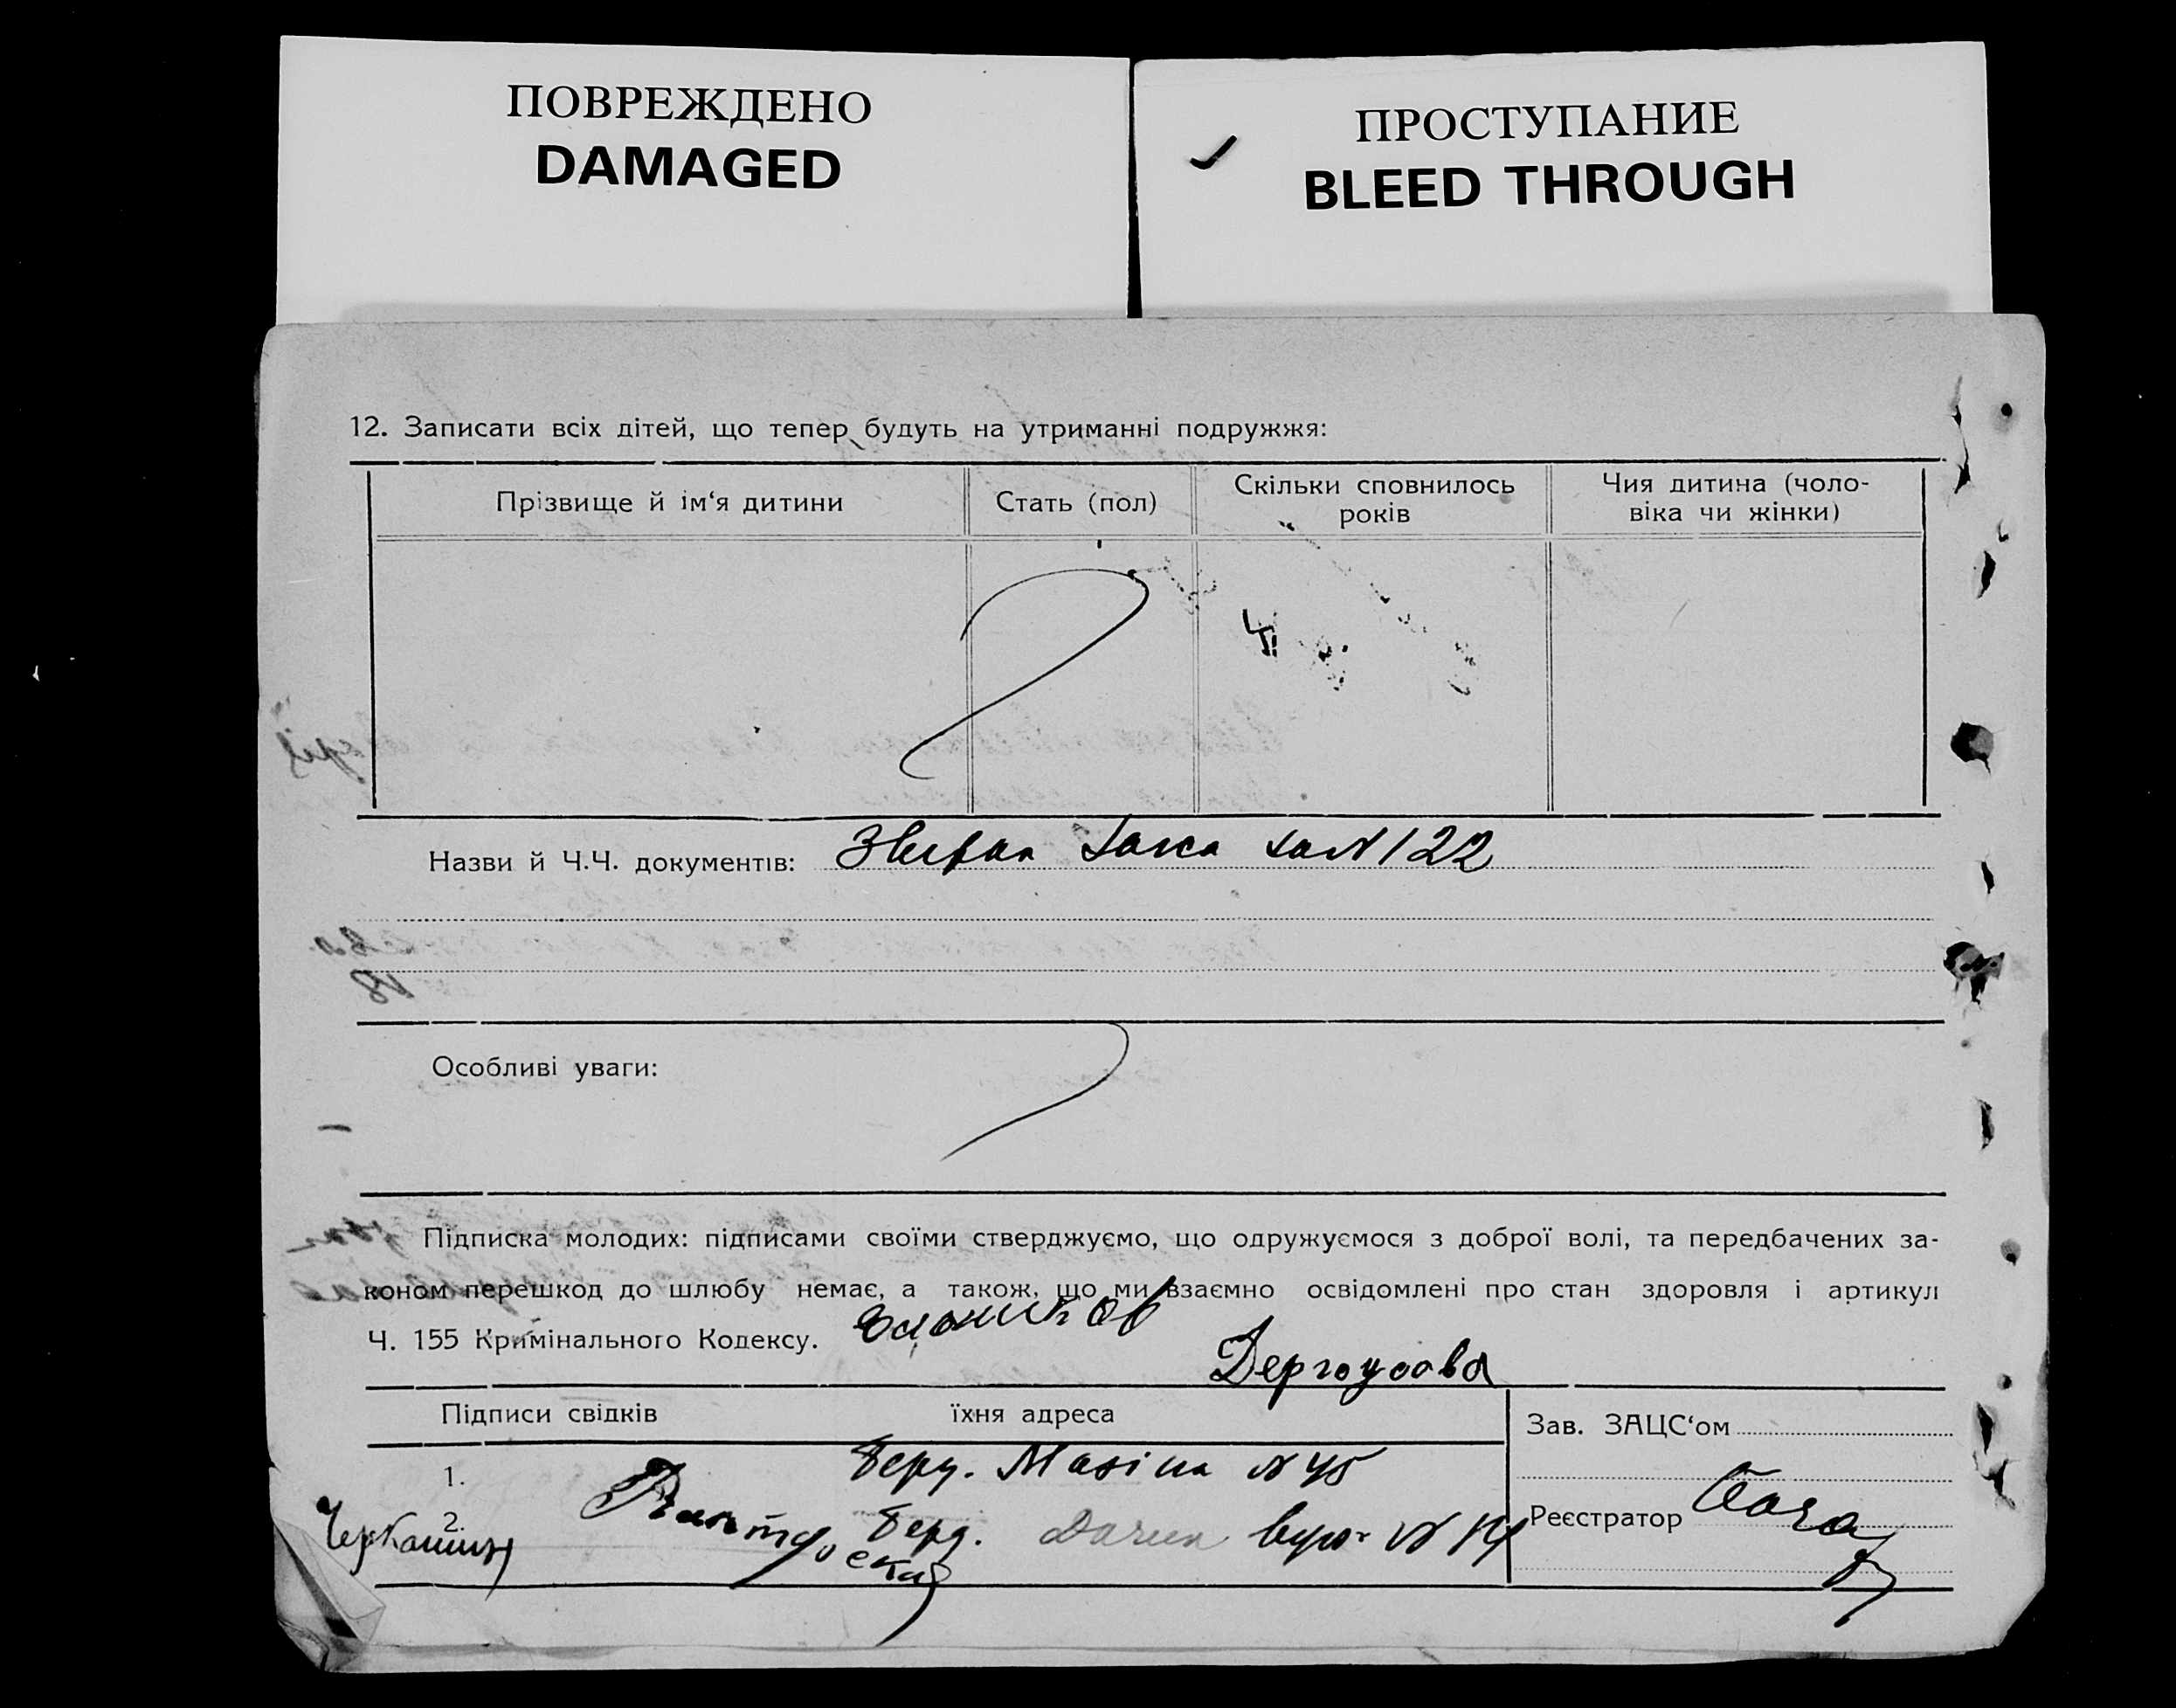 ПОВРЕЖДЕНО
DAMAGED
ПРОСТУПАНИЕ
BLEED THROUGH
12. Записати всіх дітей, що тепер будуть на утриманні подружжя:
Прізвище й ім‘я дитини
Стать (пол)
Скільки сповнилось
років
Чия дитина (чоло-
віка чи жінки)
Назви й Ч.Ч. документів: N 122
Особливі уваги:
Підписка молодих: підписами своїми стверджуємо, що одружуємося з доброї волі, та передбачених за-
коном перешкод до шлюбу немає, а також, що ми взаємно освідомлені про стан здоровля і артикул
Ч. 155 Кримінального Кодексу.
Дергоусова
Підписи свідків
їхня адреса
Зав. ЗАЦС‘ом
1. N 45
2. Черкашин N 14
Реєстратор